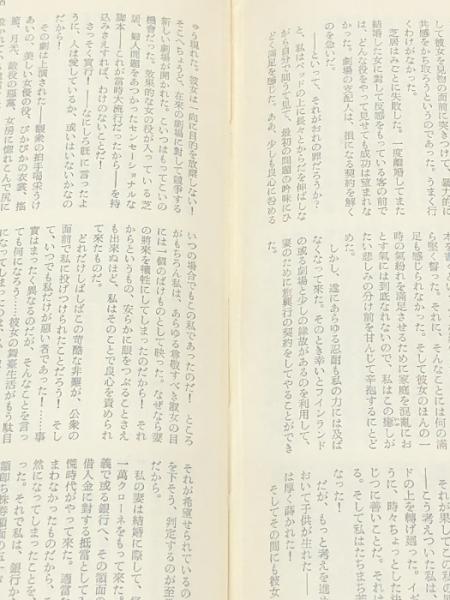 して彼女を見物の面前に突きつけて、暴力的に
共感をかち取ろうというのであった。うまく行
くわけがなかった。
芝居はみごとに失敗した。一度離婚してまた
結婚した女に対して反感をもっている客の前で
は、どんな役をやって見せても成功は望まれな
かった。劇場の支配人は、損になる契約を解く
のを急いだ。
――といって、それがおれの罪だろうか？
と、私はベッドの上に長々とからだを伸ばしな
がら自分で問うて見て、最初の問題の吟味にひ
どく満足を感じた。ああ、少しも良心に咎める
ら堅く誓った。それに、そんなことには何の満
足も感じられなかった。そして彼女のほんの一
時の気紛れを満足させるために家庭を混乱にお
とす気には到底なれないので、私はこの癒しが
たい悲しみの分け前を甘んじて辛抱するにとど
めた。
しかし、遂にあらゆる忍耐も私の力には及ば
なくなって来た。そのとき幸いとフィンランド
の或る劇場と少しの縁故があるのを利用して、
妻のために興行の契約をしてやることができ
それが果してこの私の
――こう考えついた私は、
ドの上を転げ廻った。イギ
うに、時々ちょっとした
じつに善いことだ。それは
る。そして私はたちまち
なった！
だが、もっと考えを進め
おいて子供が生れた――
は厚く蔽かれた！
そしてその間にも彼女
ゅう現れた。彼女は一向に目的を放棄しない！
そこへちょうど、在来の劇場に対して競争する
新しい劇場が開かれた。こいつはもってこいの
機会だった。効果的な女の役が入っている芝
居、婦人問題をあつかったセンセーショナルな
脚本――これが当時大流行だったから――を持
込みさえすれば、わけのないことだ！
さっそく実行！――なにしろ既に言ったよ
うに、人は愛しているか、或いはいないかなの
だから！
その劇は上演された――観衆の拍手喝采うけ
あいの、美しい女優の役、ぴかぴかの衣裳、揺
籃、月光、敵役の悪党、女房に惚れこんで尻に
いつの場合でもこの私であったのだ！　ところ
がもちろん私は、あらゆる尊敬すべき淑女の目
には一個のばけものとして映った。なぜなら妻
の將來を犠牲にしてしまったのだから！　それ
からというもの、安らかに眼をつぶることさえ
も出来ぬほど、私はそのことで良心を責められ
て来たものだ。
どれだけしばしばこの苛酷な非難が、公衆の
面前で私に投げつけられたことだろう！　そし
て、いつでも私だけが悪い者であった！……事
実はまったく異なるのだが、そんなことを言っ
ても何になろう……彼女の舞臺生活がもう駄目
になってしまったのは
それが希望せられているの
を下そう、判定するのが至
だから。
私の妻は結婚に際して、
一萬クローネをもって来た。
義で或る銀行へ、その額面の
借入金に対する抵当として
慌時代がやって来た。適当な
まわなかったものだから、
然になってしまったことを、
た。それで私は、銀行か